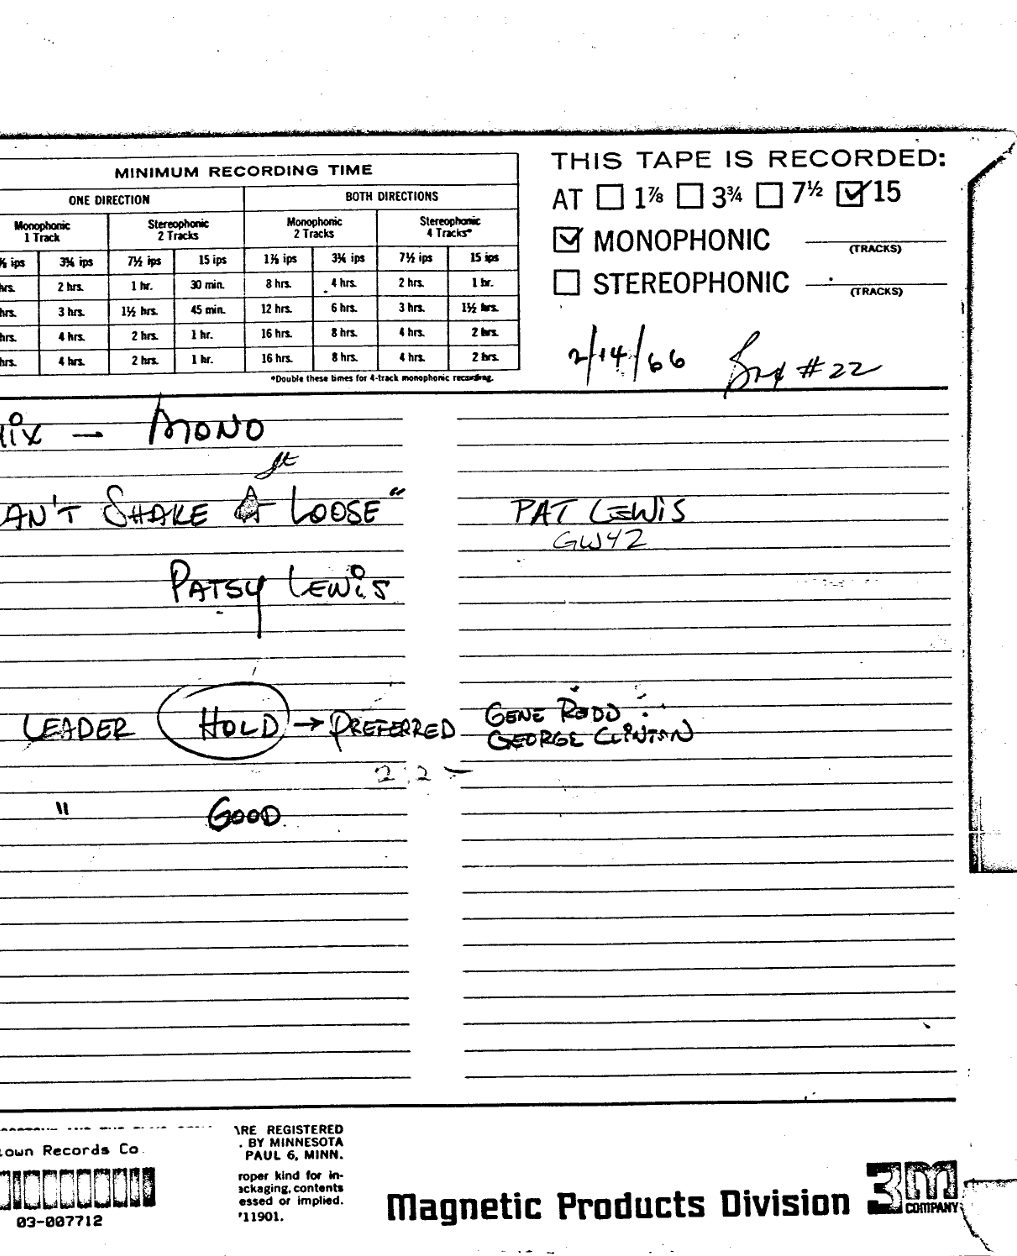 MINIMUM RECORDING TIME
ONE DIRECTION BOTH DIRECTIONS
Monophonic 1 Track Stereophonic 2 Tracks Monophonic 2 Tracks Stereophonic 4 Tracks*
ips 3¾ ips 7½ ips 15 ips 1⅞ ips 3¾ ips 7½ ips 15 ips
hrs. 2 hrs. 1 hr. 30 min. 8 hrs. 4 hrs. 2 hrs. 1 hr.
hrs. 3 hrs. 1½ hrs. 45 min. 12 hrs. 6 hrs. 3 hrs. 1½ hrs.
hrs. 4 hrs. 2 hrs. 1 hr. 16 hrs. 8 hrs. 4 hrs. 2 hrs.
hrs. 4 hrs. 2 hrs. 1 hr. 16 hrs. 8 hrs. 4 hrs. 2 hrs.
*Double these times for 4-track monophonic recording.
THIS TAPE IS RECORDED:
AT 1⅞ 3¾ 7½ 15
MONOPHONIC (TRACKS)
STEREOPHONIC (TRACKS)
2/14/66 #22
MIX — MONO
it
AN'T SHAKE LOOSE" PAT LEWIS
GW42
PATSY LEWIS
LEADER HOLD → PREFERRED GENE REDD
GEORGE CLINTON
" GOOD
ARE REGISTERED
. BY MINNESOTA
PAUL 6, MINN.
roper kind for in-
ackaging, contents
essed or implied.
11901.
town Records Co.
03-007712
Magnetic Products Division 3M COMPANY